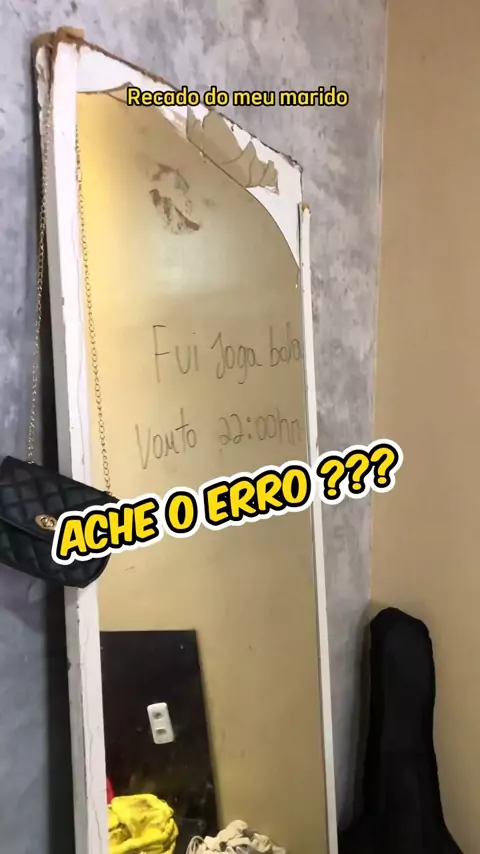 Recado do meu marido
Fui Joga bola
Vouto 22:00hr
ACHE O ERRO ???